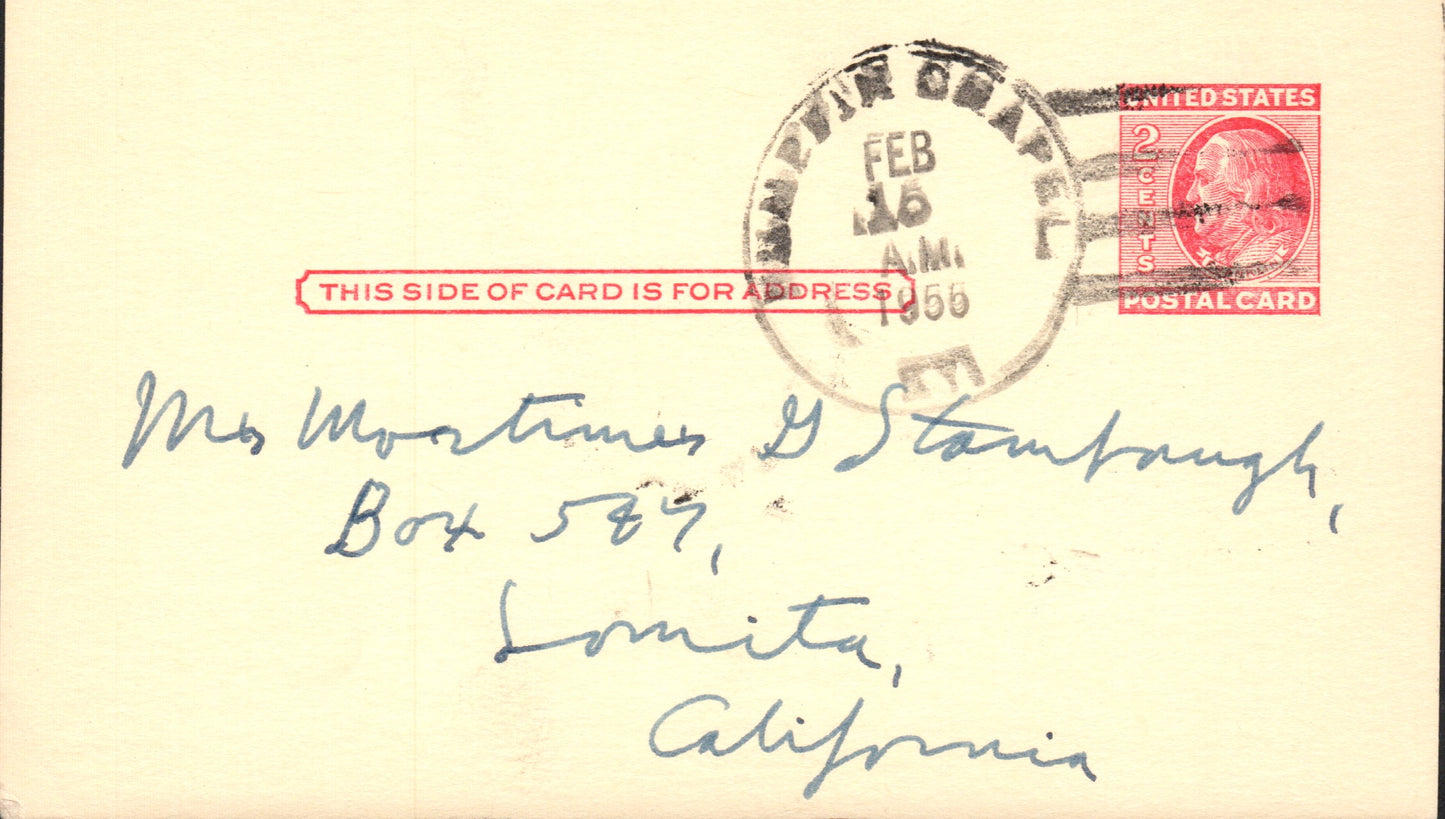 CHAPEL
FEB
15
A.M.
1955
UNITED STATES
2 CENTS
FRANKLIN
POSTAL CARD
THIS SIDE OF CARD IS FOR ADDRESS
Mr Mortimer G Stambaugh,
Box
Lomita,
California